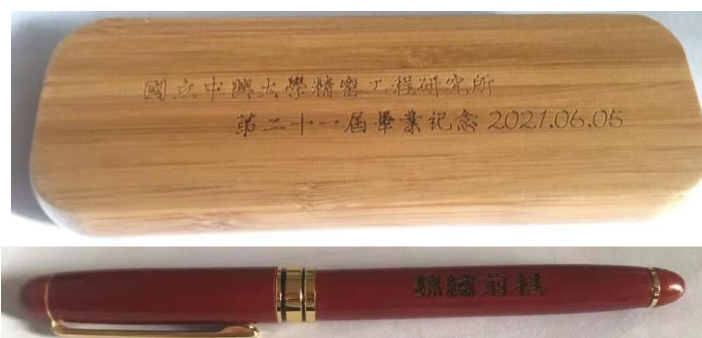 國立中興大學精密工程研究所
第二十一屆畢業紀念 2021.06.05
錦繡前程